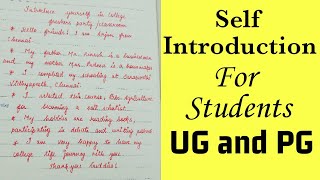 Introduce yourself in college
freshers party/classroom
Hello friends! I am from
Chennai.
My father Mr. is a businessman
and my mother Mrs. is a homemaker
I completed my schooling at
Vidhyapeeth, Chennai.
I selected this course, Bsc Agriculture
for becoming a soil scientist.
My hobbies are reading books,
participating in debate and writing
I am very happy to have my
college life journey with you.
Thank you buddies!
Self
Introduction
For
Students
UG and PG